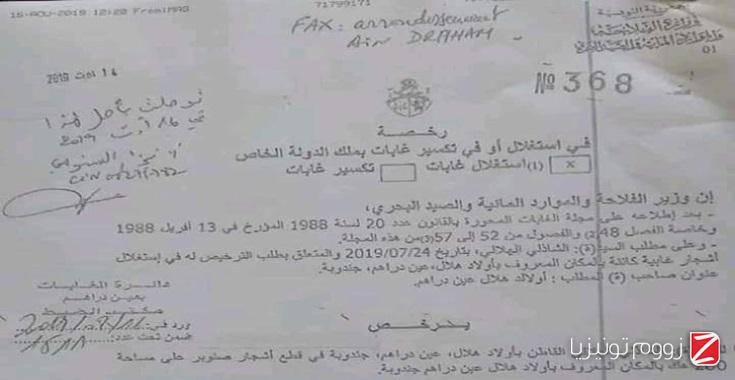 15-AOU-2019 12:20 From:MAG
71799171
FAX: arrondissement
AIN DRAHAM
الجمهورية التونسية
01
14 أوت 2019
№ 368
توصلت بأصل هذا
في 16 أوت 2019
رخصة
في استغلال أو في تكسير غابات بملك الدولة الخاص
(1) استغلال غابات
x
تكسير غابات
إن وزير الفلاحة والموارد المائية والصيد البحري،
- بعد إطلاعه على مجلة الغابات المحورة بالقانون عدد 20 لسنة 1988 المؤرخ في 13 أفريل 1988
وخاصة الفصل 48(2) والفصول من 52 إلى 57(3) من هذه المجلة.
- وعلى مطلب السيد(ة): الشاذلي الهلالي، بتاريخ 2019/07/24 والمتعلق بطلب الترخيص له في إستغلال
أشجار غابية كائنة بالمكان المعروف بأولاد هلال، عين دراهم، جندوبة.
عنوان صاحب (ة) المطلب : أولاد هلال عين دراهم، جندوبة.
دائرة الغابات
بعين دراهم
مكتب الضبط
ورد في:
ضمن تحت عدد:
يرخص
القاطن بأولاد هلال، عين دراهم، جندوبة في قطع أشجار صنوبر على مساحة
200 هك بالمكان المعروف بأولاد هلال عين دراهم جندوبة.
زووم تونيزيا
Z